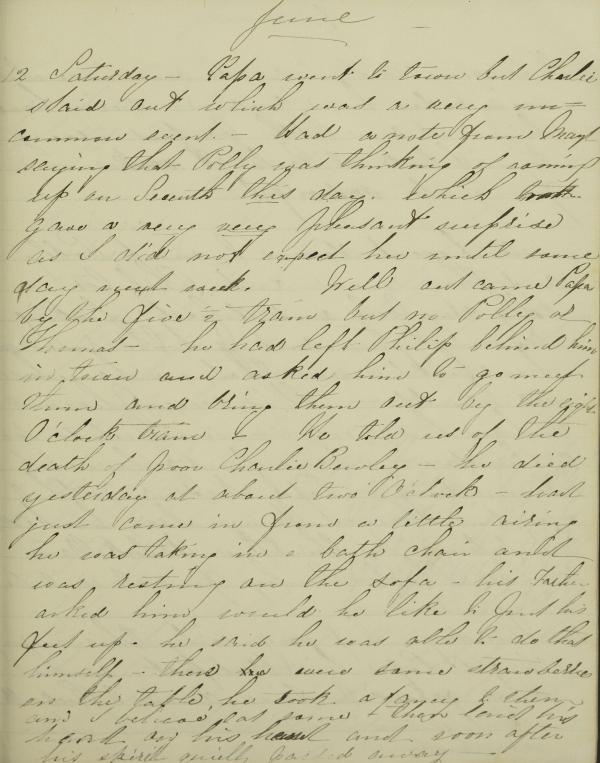 June
12 Saturday – Papa went to town but Charlie
staid out which was a very un-
common event. – Had a note from Mary
saying that Polly was thinking of coming
up on Seventh this day. which
gave a very very pleasant surprise
as I did not expect her until some
day next week. Well out came Papa
by the five o' train but no Polly or
Thomas – he had left Philip behind him
in town and asked him to go meet
them and bring them out by the eight
O'clock train – He told us of the
death of poor Charlie Bewley – he died
yesterday at about two O'clock – had
just come in from a little airing
he was taking in a bath chair and
was resting on the sofa – his Father
asked him would he like to put his
feet up – he said he was able to do that
himself – there were some strawberries
on the table, he took a fancy to them
and I believe eat some – then laid his
head on his hand and soon after
his spirit passed away –